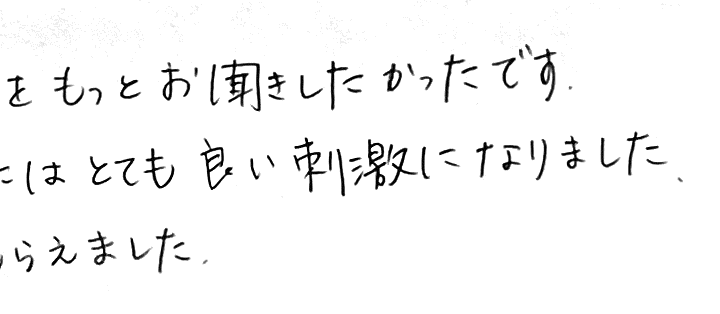 をもっとお聞きしたかったです.
にはとても良い刺激になりました、
らえました.